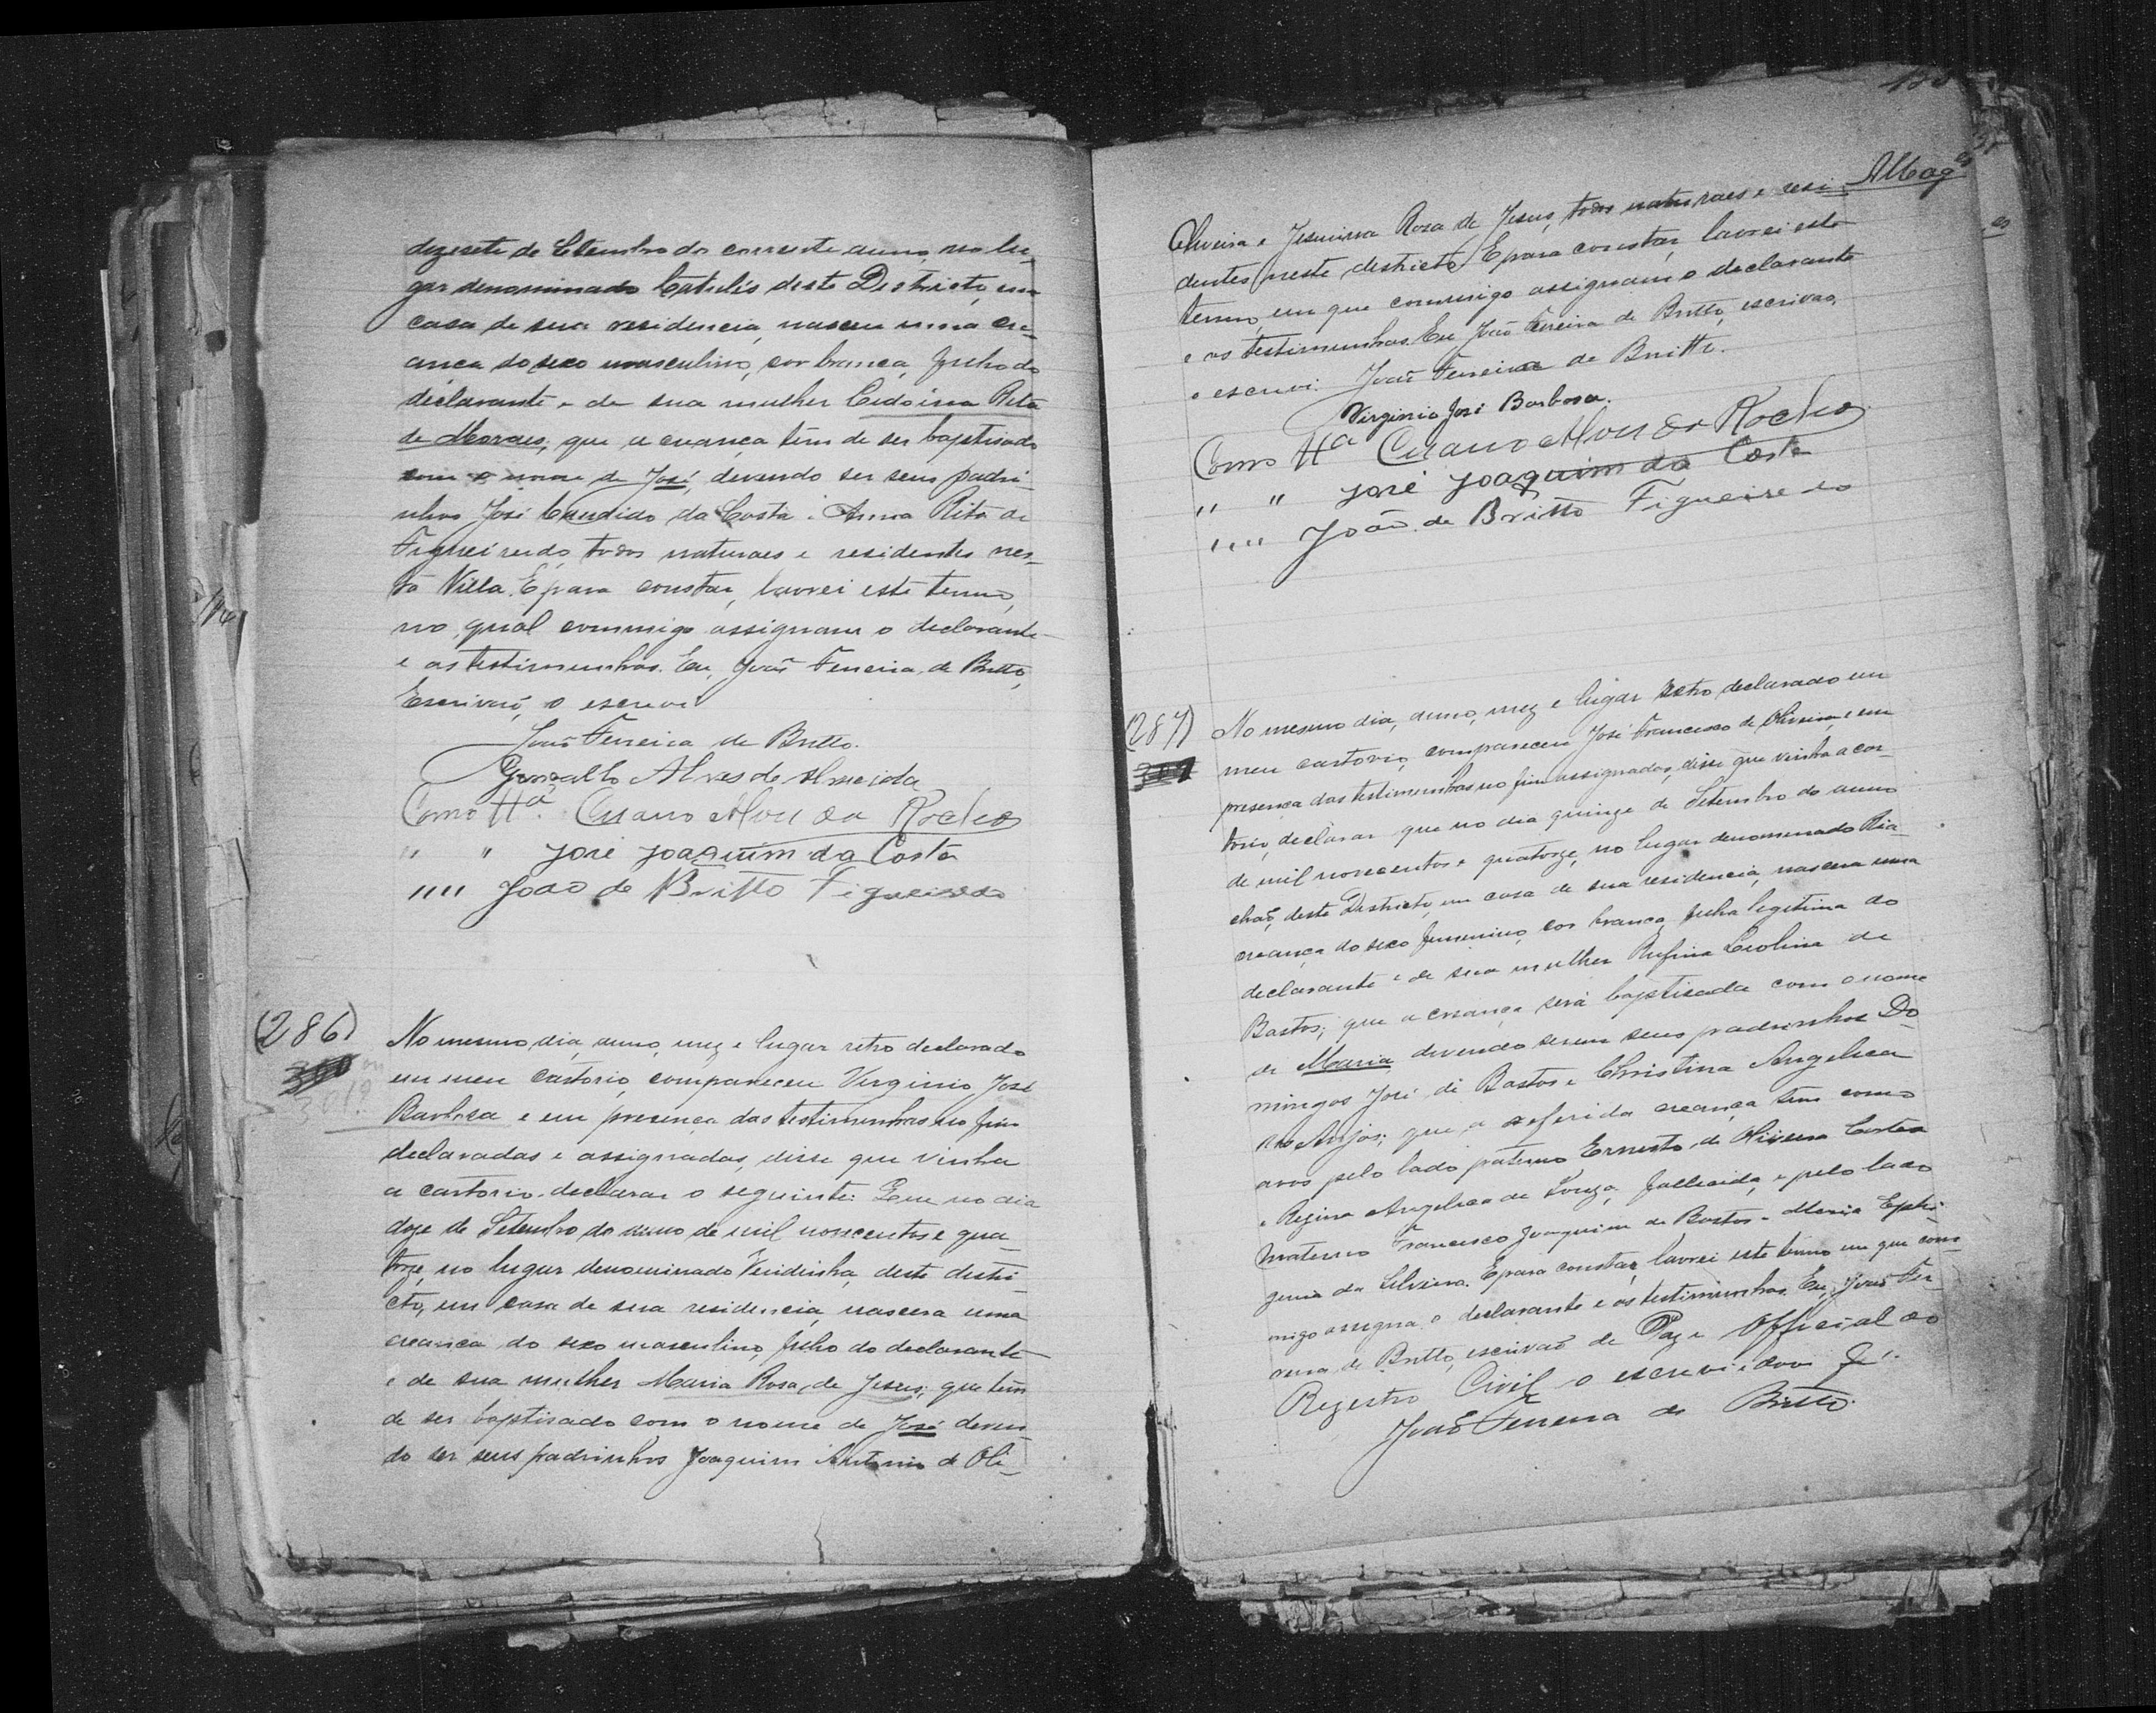 dezesete de Setembro do corrente anno, no lu-
gar denominado Catulés deste Districto, em
casa de sua residencia, nasceu uma cre-
ança do sexo masculino, cor branca, filho do
declarante e de sua mulher Cedoina Rita
de Moraes, que a creança tem de ser baptisado
com o nome de José, devendo ser seus padri-
nhos José Candido da Costa e Anna Rita de
Figueirendo, todos naturaes e residentes nes-
ta Villa. E para constar, lavrei este termo,
no qual commigo assignam o declarante
e as testimunhas. Eu, João Ferreira de Britto,
Escrivão, o escrevi
João Ferreira de Britto.
Gonsallo Alves de Almeida
Como ttª. Alves da Rocha
" " José Joaquim da Costa
" " João de Britto Figueiredo
(286)
No mesmo dia, anno, mez e lugar retro declarado
em meu cartorio, compareceu Virginio José
Barbosa e em presença das testimunhas no fim
declaradas e assignadas, disse que vinha
a cartorio declarar o seguinte: Que no dia
doze de Setembro do anno de mil novecentos e qua-
torze, no lugar denominado Veridinha, deste distri-
cto, em casa de sua residencia, nascera uma
creança do sexo masculino, filho do declarante
e de sua mulher Maria Rosa de Jesus; que tem
de ser baptisado com o nome de José deven-
do ser seus padrinhos Joaquim Antonio de Oli-
Oliveira e Jesuina Rosa de Jesus, todos naturaes e resi-
dentes neste districto. E para constar, lavrei este
termo, em que commigo assignam o declarante
e as testimunhas. Eu, João Ferreira de Britto, escrivão,
o escrevi. João Ferreira de Britto.
Virginio José Barbosa.
Como ttª Alves da Rocha
" " José Joaquim da Costa
" " João de Britto Figueiredo
(287)
No mesmo dia, anno, mez e lugar retro declarado em
meu cartorio, compareceu José Francisco de Oliveira, e em
presença das testimunhas no fim assignadas, disse que vinha a car-
torio, declarar que no dia quinze de Setembro do anno
de mil novecentos e quatorze, no lugar denominado Ria-
chão, deste Districto, em casa de sua residencia, nascera uma
creança do sexo femenino, cor branca, filha legitima do
declarante e de sua mulher Rufina Leolina de
Bastos; que a creança será baptisada com o nome
de Maria devendo serem seus padrinhos Do-
mingos José de Bastos e Christina Angelica
dos Anjos; que a referida creança tem como
avos pelo lado paterno Ernesto de Oliveira Costa
e Regina Angelica de Souza, fallecida, e pelo lado
materno Francisco Joaquim de Bastos e Maria Ephi-
genia da Silveira. E para constar, lavrei este termo em que com-
migo assigna o declarante e as testimunhas. Eu, João Fer-
reira de Britto, escrivão de Paz e Official do
Registro Civil o escrevi e dou fé.
João Ferreira de Britto.